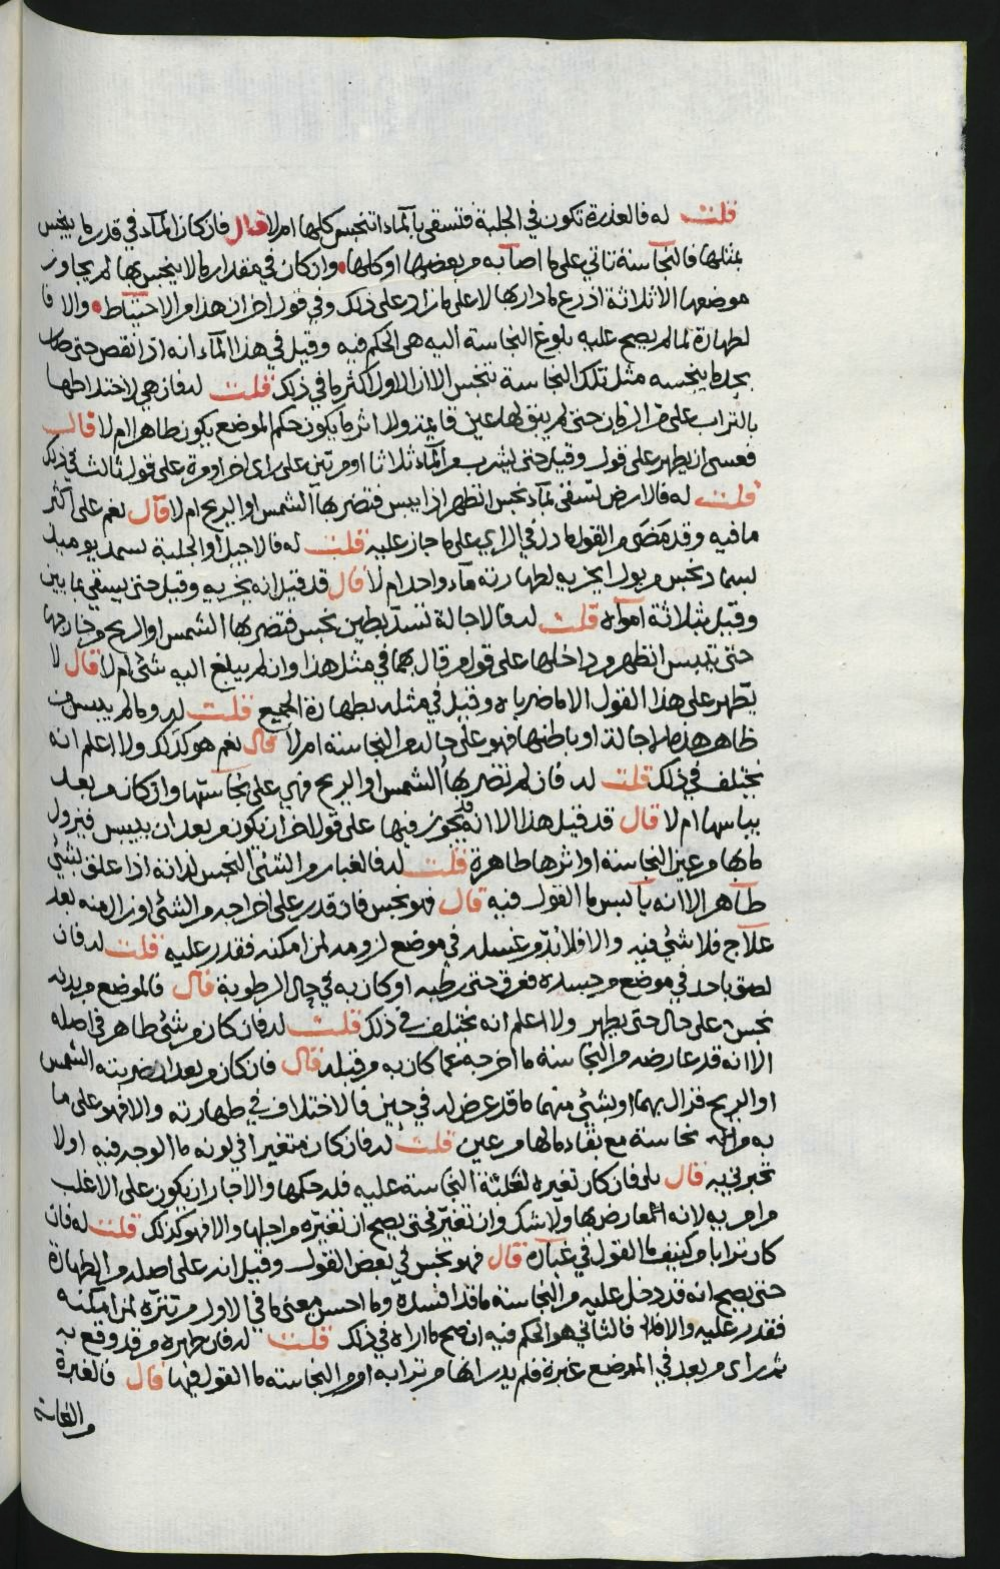 قلت له فالعذرة تكون في الجلبة فتسقى بالماء اتنجس كلها ام لا قال فان كان الماء في قدر ما ينجس
بمثلها فالنجاسة تاتي على ما اصابه من بعضها او كلها وان كان في مقدار ما لا ينجس بها لم يجاوز
موضعها الا ثلاثة اذرع مما دار بها لا على ما زاد على ذلك وفي قول اخر ان هذا من الاحتياط والا فا
لطهارة لما لم يصح عليه بلوغ النجاسة اليه هي الحكم فيه وقيل في هذا الماء انه اذا نقص حتى صار
بحد ما ينجسه مثل تلك النجاسة تنجس الا ان الاول اكثر ما في ذلك قلت له فان هي لاختلاطها
بالتراب على مر الزمان حتى لم يبق لها عين قايمة ولا اثر ما يكون حكم الموضع يكون طاهرا ام لا قال
فعسى ان يطهر على قول وقيل حتى يشرب من الماء ثلاثا او مرتين على راى اخر او مرة على قول ثالث في ذلك
قلت له فالارض تسقى بماء نجس اتطهر اذا يبس فتضربها الشمس او الريح ام لا قال نعم على اكثر
ما فيه وقد مضى من القول ما دل في الراي على ما جاز عليه قلت له فالاجيل او الجلبة تسمد يوميذ
بسماد نجس من بول ايجزيه لطهارته ماء واحد ام لا قال قد قيل انه يجزيه وقيل حتى يسقي بماءين
وقيل بثلاثة امواه قلت له فالاجالة تسد بطين نجس فتضربها الشمس او الريح من خارجها
حتى تيبس اتطهر من داخلها على قول من قال بهما في مثل هذا وان لم يبلغ اليه شئ ام لا قال لا
يطهر على هذا القول الا ما ضرباه وقيل في مثله بطهارة الجميع قلت له وما لم ييبس من
ظاهر هذه الاجالة او باطنها فهو على حاله من النجاسة ام لا قال نعم هو كذلك ولا اعلم انه
يختلف في ذلك قلت له فان لم تضربها الشمس او الريح فهي على نجاستها وان كان من بعد
يباسها ام لا قال قد قيل هذا الا انه يجوز فيها على قول اخر ان يكون من بعد ان ييبس فيزول
ما بها من عين النجاسة او اثرها طاهرة قلت له فالغبار من الشئ النجس لذاته اذا علق بشئ
طاهر الا انه يابس ما القول فيه قال فهو نجس فان قدر على اخراجه من الشئ او زال منه بعد
علاج فلا شئ فيه والا فلا بد من غسله في موضع لزومه لمن امكنه فقدر عليه قلت له فان
لصق باحد في موضع من جسده فعرق حتى رطبه او كان به في حال الرطوبة قال فالموضع من بدنه
نجس على حال حتى يطهر ولا اعلم انه يختلف في ذلك قلت له فان كان من شئ طاهر في اصله
الا انه قد عارضه من النجاسة ما اخرجه عما كان به من قبله قال فان كان من بعد ان ضربته الشمس
او الريح فزال بهما او بشئ منهما ما قد عرض له في حين فالاختلاف في طهارته والا فهو على ما
به من نجاسة مع بقاء ما لها من عين قلت له فان كان متغيرا في لونه ما الوجه فيه اولا
تخبرني به قال بلى فان كان تغيره لغلبة النجاسة عليه فله حكمها والا جاز ان يكون على الاغلب
من امر به لانه المعارض بها ولا شك وان تغير فحتى يصح ان تغيره من اجلها والا فهو كذلك قلت له فان
كان ترابا من كنيف ما القول في غباره قال فهو نجس في بعض القول وقيل انه على اصله من الطهارة
حتى يصح انه قد دخل عليه من النجاسة ما قد افسده وما احسن معنى ما في الاول من تنزه لمن امكنه
فقدر عليه والا فالثاني هو الحكم فيه ان صح ما اراه في ذلك قلت له فان طهره من قد وقع به
ثم راى من بعد في الموضع غبرة فلم يدر انها من ترابه او من النجاسة ما القول فيها قال فالغبرة
من